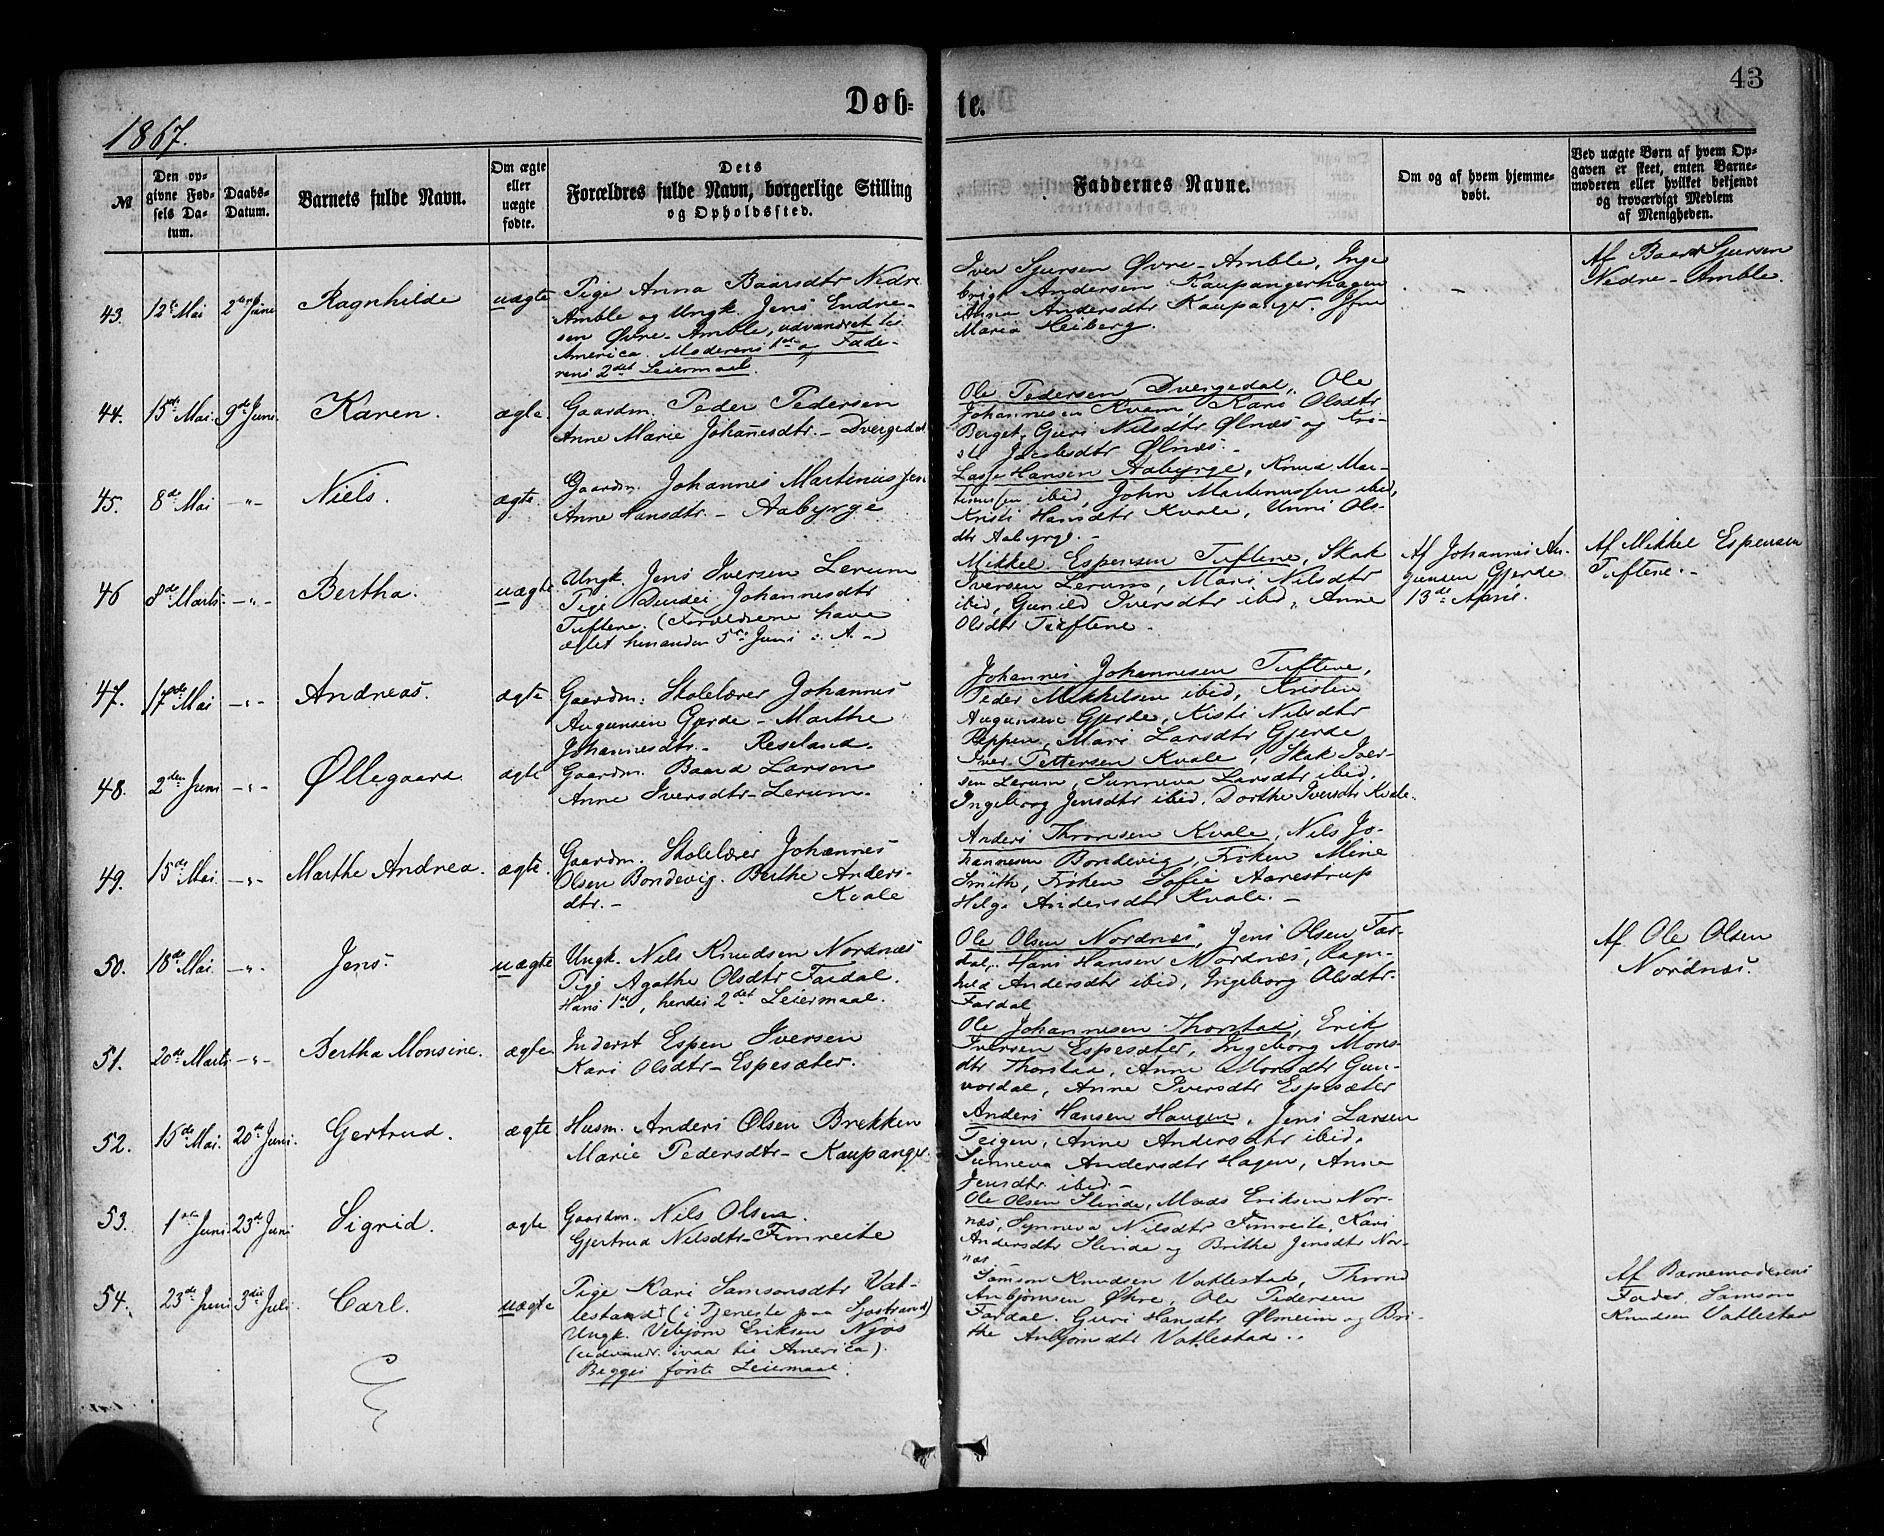 43
Døb=
te.
1867.
№
Den op-
givne Fød-
sels Da-
tum.
Daabs-
Datum.
Barnets fulde Navn.
Om ægte
eller
uægte
fødte.
Dets
Forældres fulde Navn, borgerlige Stilling
og Opholdssted.
Faddernes Navne.
Om og af hvem hjemme-
døbt.
Ved uægte Børn af hvem Op-
gaven er skeet, enten Barne-
moderen eller hvilket bekjendt
og troværdigt Medlem
af Menigheden.
43. 12te Mai 2den Juni Ragnhilde uægte
Pige Anna Baarsdtr Nedre
Amble og Ungk. Jens Endre-
sen Øvre-Amble, udvandret til
America. Moderens 1ste og Fade-
rens 2det Leiermaal.
Iver Sjursen Øvre-Amble, Inge
brigt Andersen Kaupangerhagen
Anna Andersdtr Kaupanger. Jfru
Maria Heiberg.
-
Af Baard Sjursen
Nedre-Amble.
44. 15de Mai. 9de Juni. Karen. ægte.
Gaardm. Peder Pedersen
Anne Marie Johañesdtr. - Dvergedal
Ole Pedersen Dvergedal, Ole
Johannesen Kvam, Kari Olsdtr
Berget, Guri Nilsdtr Ølnæs og Kri-
sti Jacobsdtr Ølnæs.
45. 8de Mai -"- Niels. ægte.
Gaardm. Johannes Martinussen
Anne Hansdtr. - Aabyrge
Lasse Hansen Aabyrge, Knud Mar-
tinussen ibid, John Martinussen ibid,
Kristi Hansdtr Kvale, Unni Ols-
dtr Aabyrge. -
46 8de Marts. -"- Bertha. uægte
Ungk. Jens Iversen Lerum
Pige Durdei Johannesdtr
Tuftene. (Forældrene have
ægtet hinanden 5te Juni d. A. -)
Mikkel Espensen Tuftene, Skak
Iversen Lerum, Mari Nilsdtr
ibid, Gunild Iversdtr ibid, Anne
Olsdtr Tuftene -
Af Johannes An-
gunsen Gjerde
13de April.
Af Mikkel Espensen
Tuftene. -
47. 17de Mai -"- Andreas. ægte
Gaardm. Skolelærer Johannes
Angunsen Gjerde - Marthe
Johannesdtr. - Reseland.
Johannes Johannesen Tuftene,
Peder Mikkelsen ibid, Kristen
Angunsen Gjerde, Kisti Nilsdtr
Reppen, Mari Larsdtr Gjerde
48. 2den Juni -"- Øllegaard ægte
Gaardm. Baard Larsen
Anne Iversdtr - Lerum.
Iver Pettersen Kvale, Skak Iver-
sen Lerum, Sunneva Larsdtr ibid,
Ingeborg Jensdtr ibid. Dorthe Iversdtr Kvale.
49. 15de Mai -"- Marthe Andrea. ægte.
Gaardm. Skolelærer Johannes
Olsen Bondevig. Berthe Anders-
dtr. - Kvale
Anders Thronsen Kvale, Nils Jo-
hannesen Bondevig, Frøken Mine
Smith, Frøken Sofie Aarestrup
Helge Andersdtr Kvale. -
50. 18de Mai. -"- Jens. uægte
Ungk. Nils Knudsen Nordnæs
Pige Agathe Olsdtr Fardal.
Hans 1ste, hendes 2det Leiermaal.
Ole Olsen Nordnæs, Jens Olsen Far-
dal, Hans Hansen Nordnæs, Ragn-
hild Andersdtr ibid, Ingeborg Olsdtr.
Fardal
Af Ole Olsen
Nordnæs.
51. 20de Marts -"- Bertha Monsine. ægte
Inderst Espen Iversen
Kari Olsdtr - Espesæter.
Ole Johannesen Thorstad, Erik
Iversen Espesæter, Ingeborg Mons-
dtr Thorstad, Anne Monsdtr Gun-
vordal, Anne Iversdtr Espesæter
52. 15de Mai. 20de Juni. Gertrud. ægte
Husm. Anders Olsen Brekken
Marie Pedersdtr - Kaupanger.
Anders Hansen Haugen, Jens Larsen
Teigen, Anne Andersdtr ibid,
Sunneva Andersdtr Hagen, Anne
Jensdtr ibid. -
53. 1ste Juni 23de Juni Sigrid. ægte
Gaardm. Nils Olsen.
Gjertrud Nilsdtr - Fimreite
Ole Olsen Slinde, Mads Eriksen Nor-
næs, Synneva Nilsdtr Fimreite, Kari
Andersdtr Slinde og Brithe Jensdtr Nor-
næs
54. 23de Juni 3die Juli Carl. uægte
Pige Kari Samsonsdtr Vat-
lestad (i Tjeneste paa Sjøstrand)
Ungk. Vebjørn Eriksen Njøs
(udvandr. ivaar til America).
Begges første Leiermaal.
Samson Knudsen Vatlestad, Thrond
Anbjørnsen Øhre, Ole Pedersen
Fardal. Guri Hansdtr Ølmeim og Bri-
the Anbjørnsdtr Vatlestad.
Af Barnemoderens
Fader, Samson
Knudsen Vatlestad